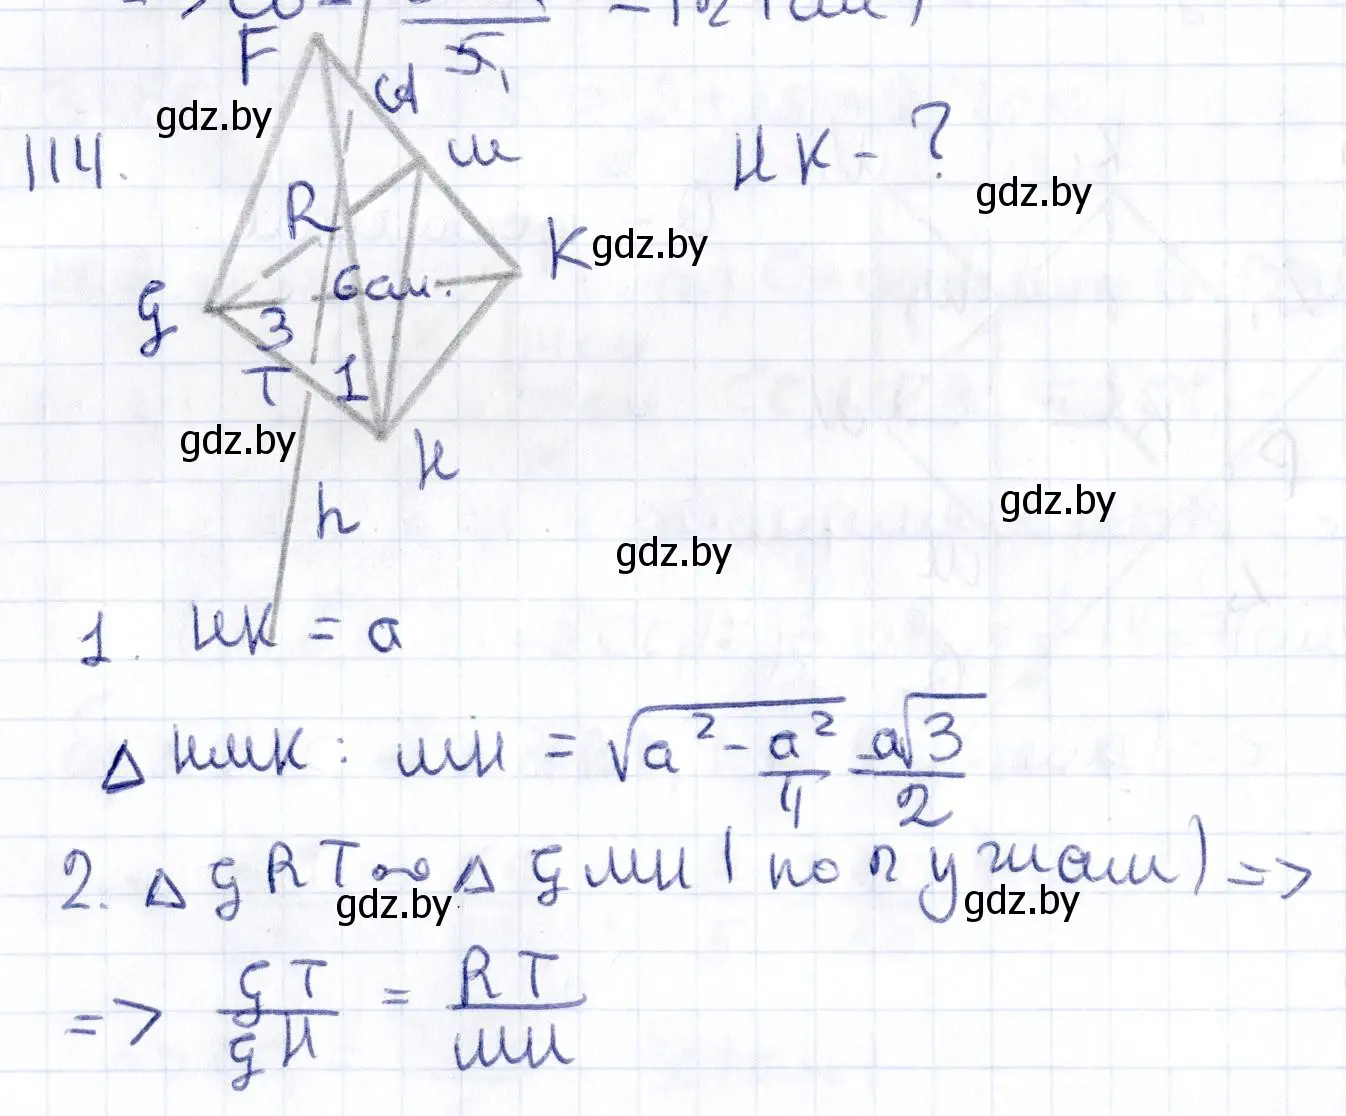 F
gdz.by
A
5,
м
114.
НК - ?
gdz.by
R
K
gdz.by
6 см.
G
3
T
1
gdz.by
H
h
gdz.by
gdz.by
1. НК = a
Δ НМК: МН = √a² - a²/4 = a√3/2
2. Δ GRT ∾ Δ GМН (по 2 углам) =>
gdz.by
gdz.by
=> GT/GH = RT/МН